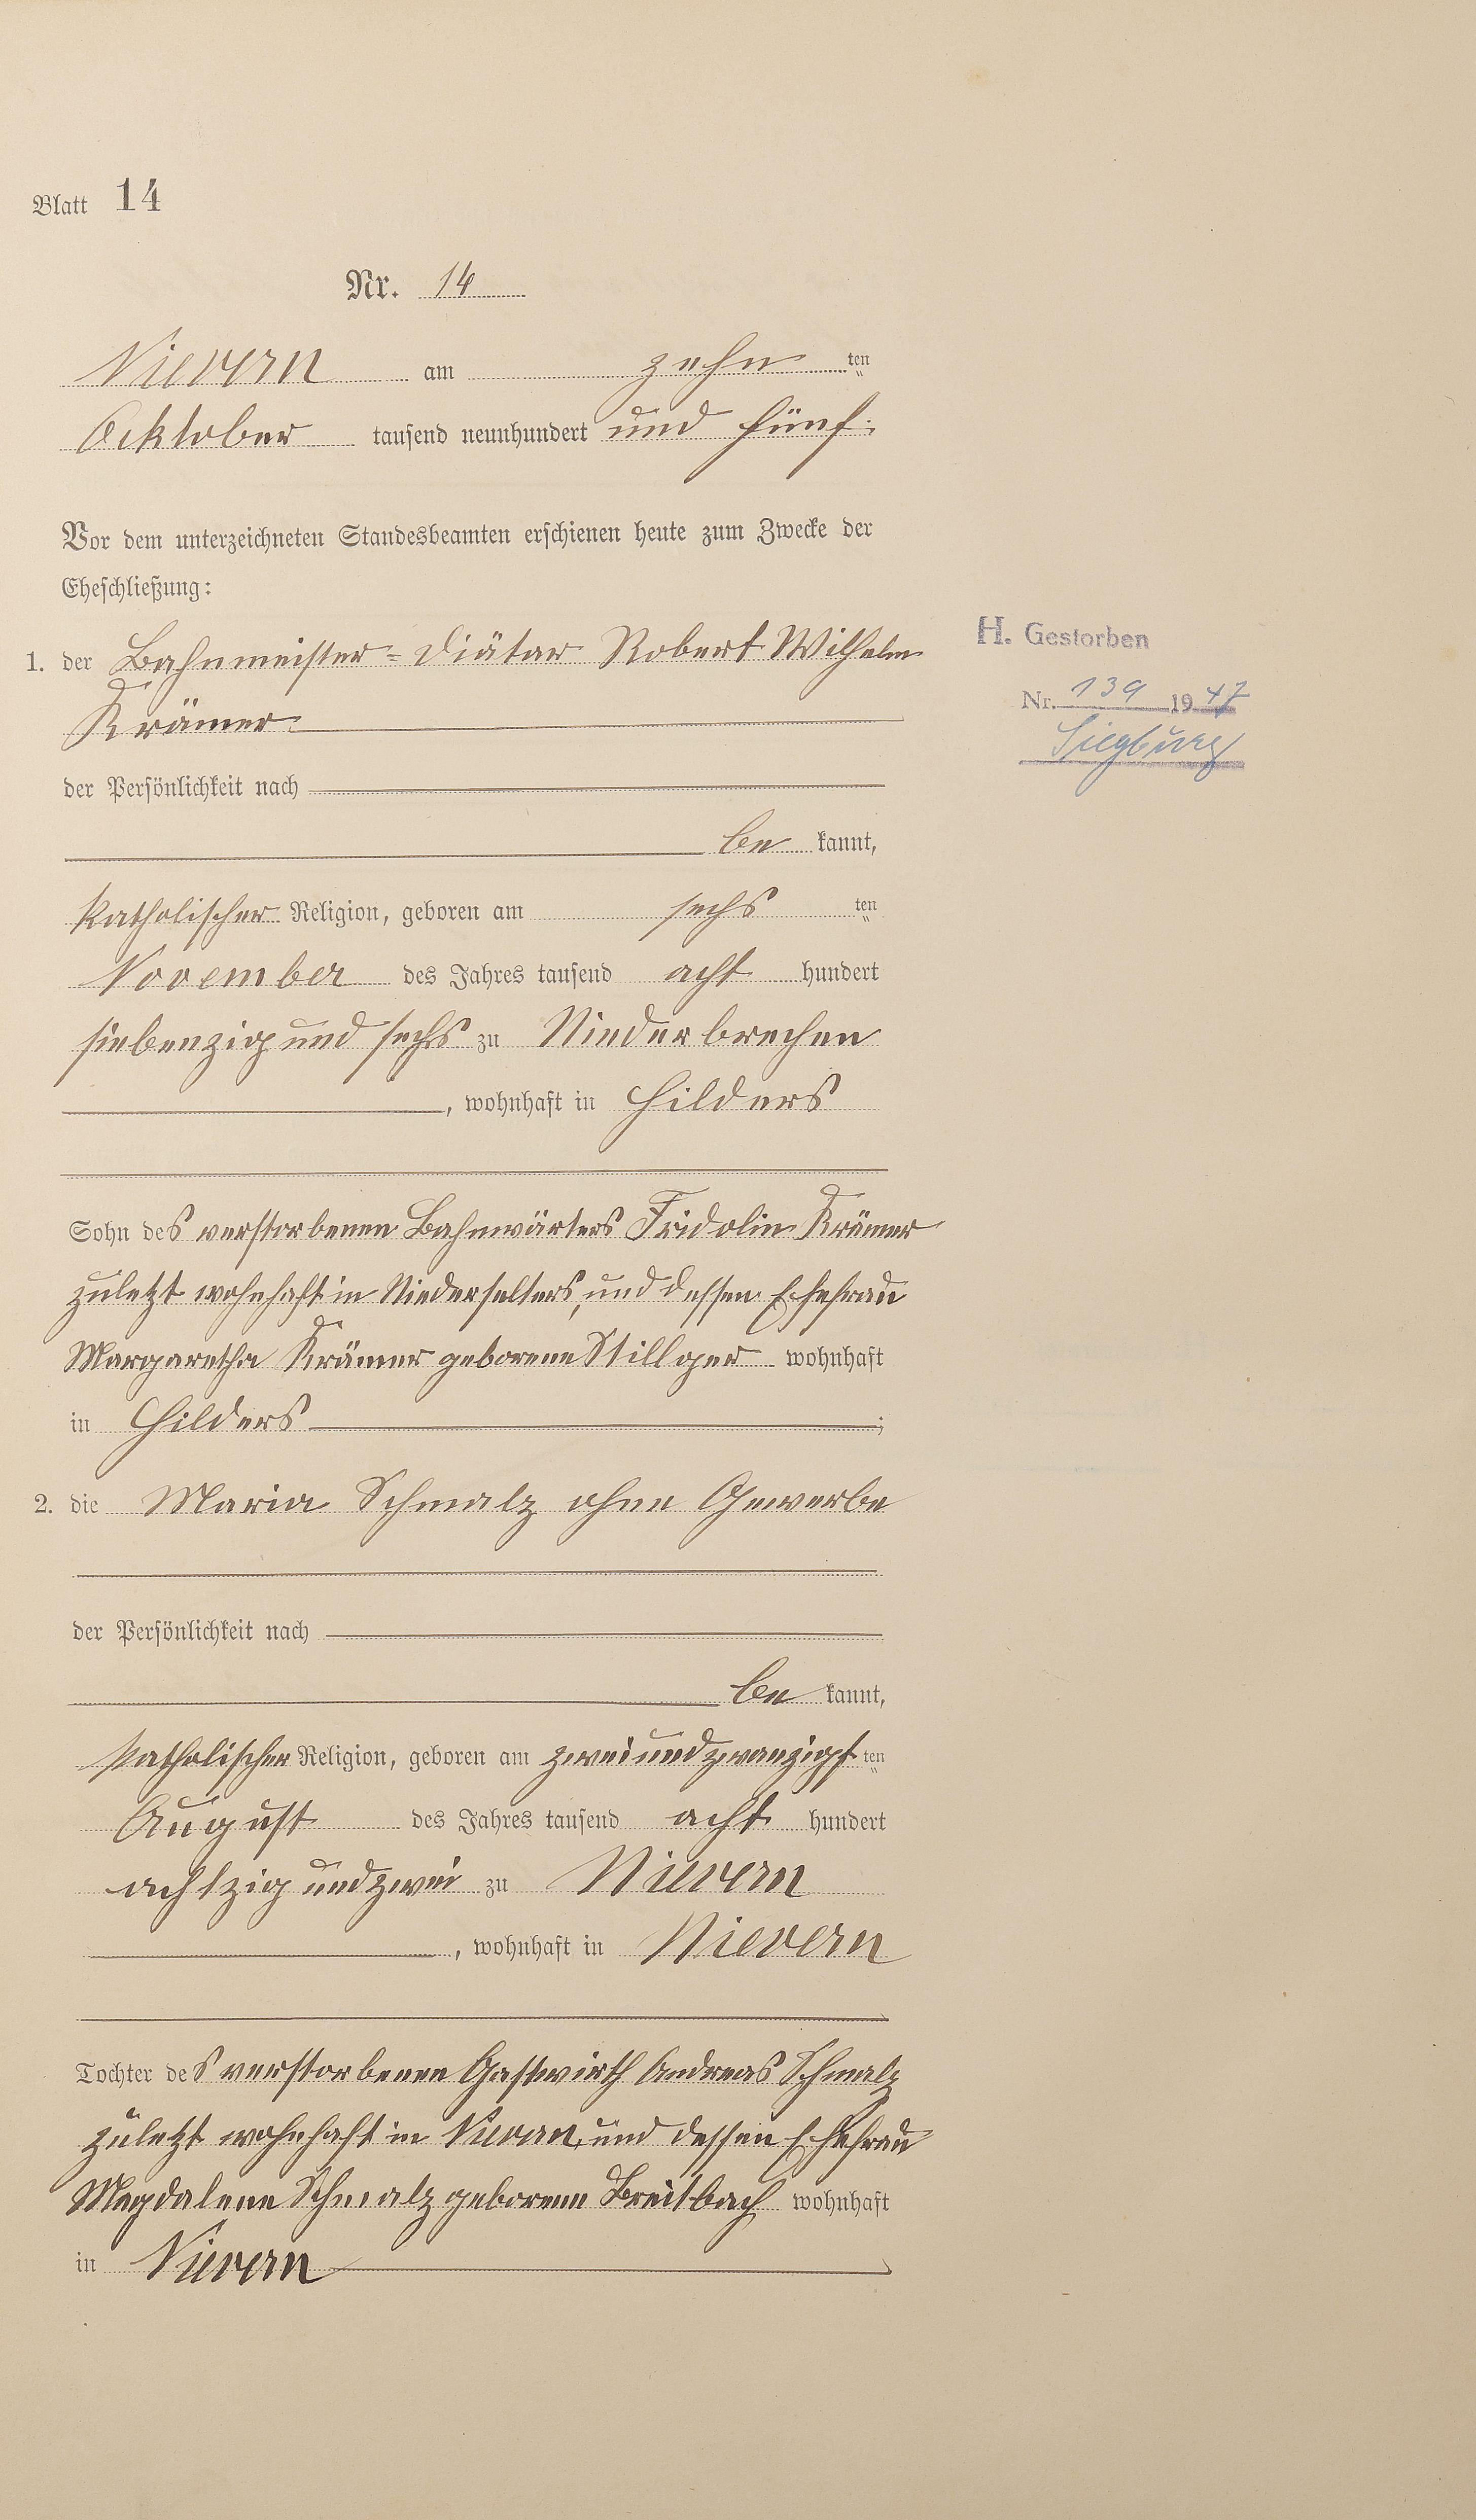 Blatt 14
Nr. 14
Nievern am zehn ten
Ocktober tausend neunhundert und fünf.
Vor dem unterzeichneten Standesbeamten erschienen heute zum Zwecke der
Eheschließung:
1. der Bahnmeister-Diätar Robert Wilhelm
Krämer
der Persönlichkeit nach
be kannt,
katholischer Religion, geboren am sechs ten
November des Jahres tausend acht hundert
siebenzig und sechs zu Niederbrechen
, wohnhaft in Hilders
Sohn des verstorbenen Bahnwärters Fridolin Krämer
zuletzt wohnhaft in Niederselters, und dessen Ehefrau
Margaretha Krämer geborene Stillger wohnhaft
in Hilders ;
2. die Maria Schmalz ohne Gewerbe
der Persönlichkeit nach
be kannt,
katholischer Religion, geboren am zweiundzwanzigs ten
August des Jahres tausend acht hundert
achtzig und zwei zu Nievern
, wohnhaft in Nievern
Tochter des verstorbenen Gastwirth Andreas Schmalz
zuletzt wohnhaft in Nievern, und dessen Ehefrau
Magdalene Schmalz geborene Breitbach wohnhaft
in Nievern
H. Gestorben
Nr. 139 1947
Siegburg